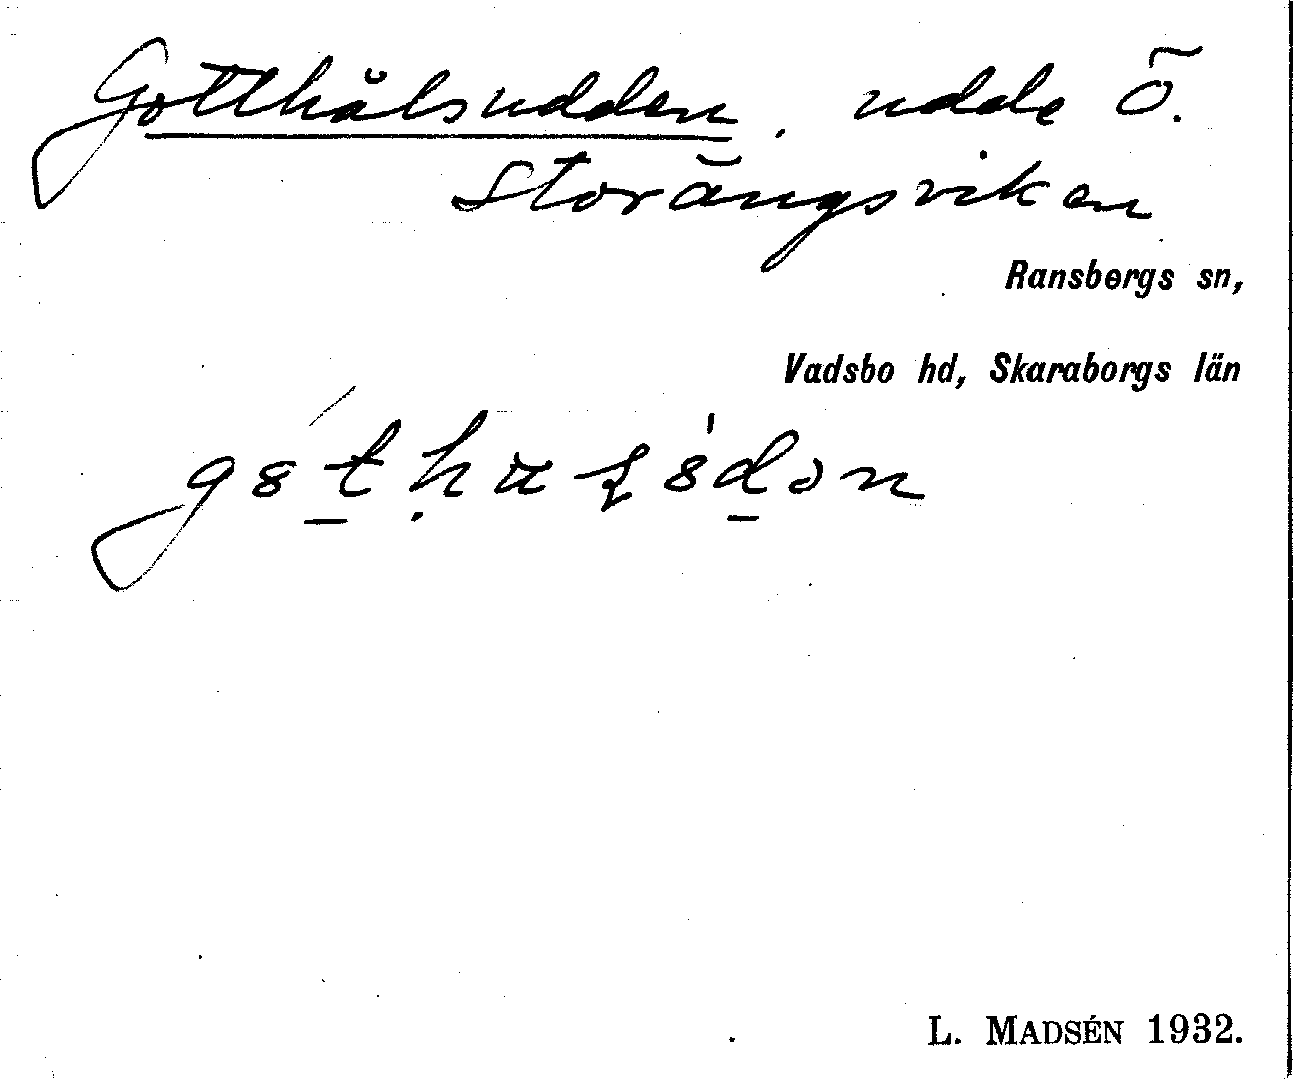 Gotthålsudden, udde Ö.
Storängsviken
Ransbergs sn,
Vadsbo hd, Skaraborgs län
L. MADSÉN 1932.